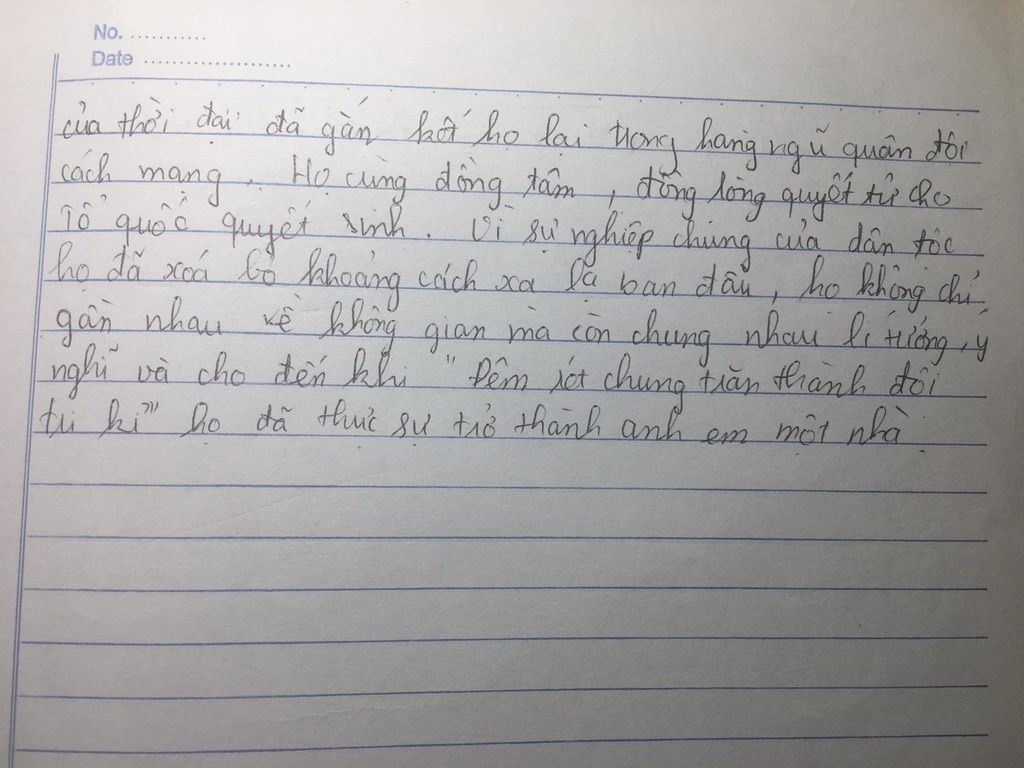 No. ...........
Date .....................
của thời đại đã gắn kết họ lại trong hàng ngũ quân đội
cách mạng. Họ cùng đồng tâm, đồng lòng quyết tử cho
Tổ quốc quyết sinh. Vì sự nghiệp chung của dân tộc
họ đã xoá bỏ khoảng cách xa lạ ban đầu, họ không chỉ
gần nhau về không gian mà còn chung nhau lí tưởng, ý
nghĩ và cho đến khi "Đêm rét chung trăn thành đôi
tri kỉ" họ đã thực sự trở thành anh em một nhà